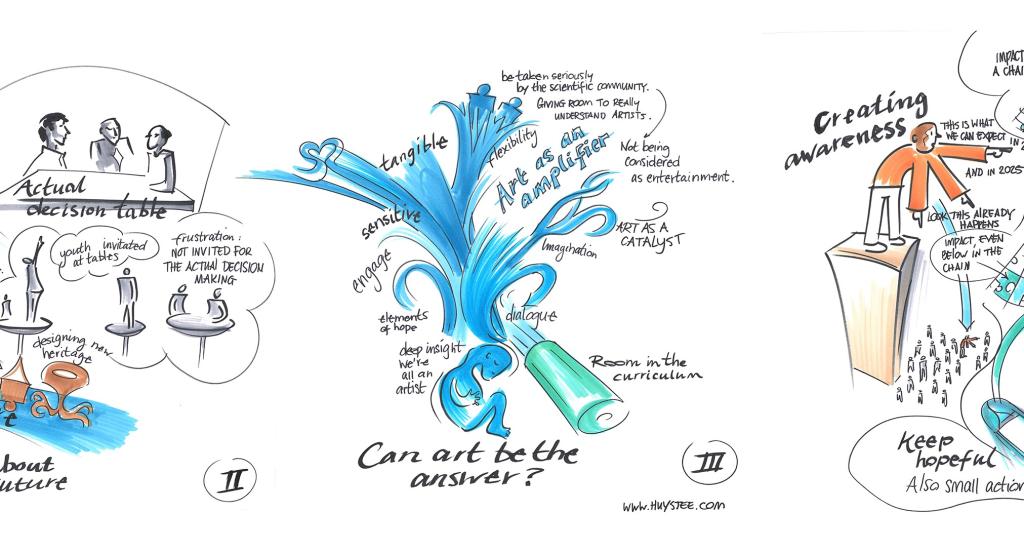 Actual
decision table
youth invitated
at tables
frustration:
NOT INVITED FOR
THE ACTUAL DECISION
MAKING
designing new
heritage
bout
uture
II
be taken seriously
by the scientific community.
GIVING ROOM TO REALLY
UNDERSTAND ARTISTS.
tangible
flexibility
Art as an
amplifier
Not being
considered
as entertainment.
sensitive
engage
Imagination
ART AS A
CATALYST
elements
of hope
dialogue
deep insight
we're
all an
artist
Room in the
curriculum
Can art be the
answer?
III
www.HUYSTEE.com
IMPACT
A CHAI
Creating
awareness
THIS IS WHAT
WE CAN EXPECT
IN 2
AND IN 2025
LOOK THIS ALREADY
HAPPENS
IMPACT, EVEN
BELOW IN THE
CHAIN
Keep
hopeful
Also small action